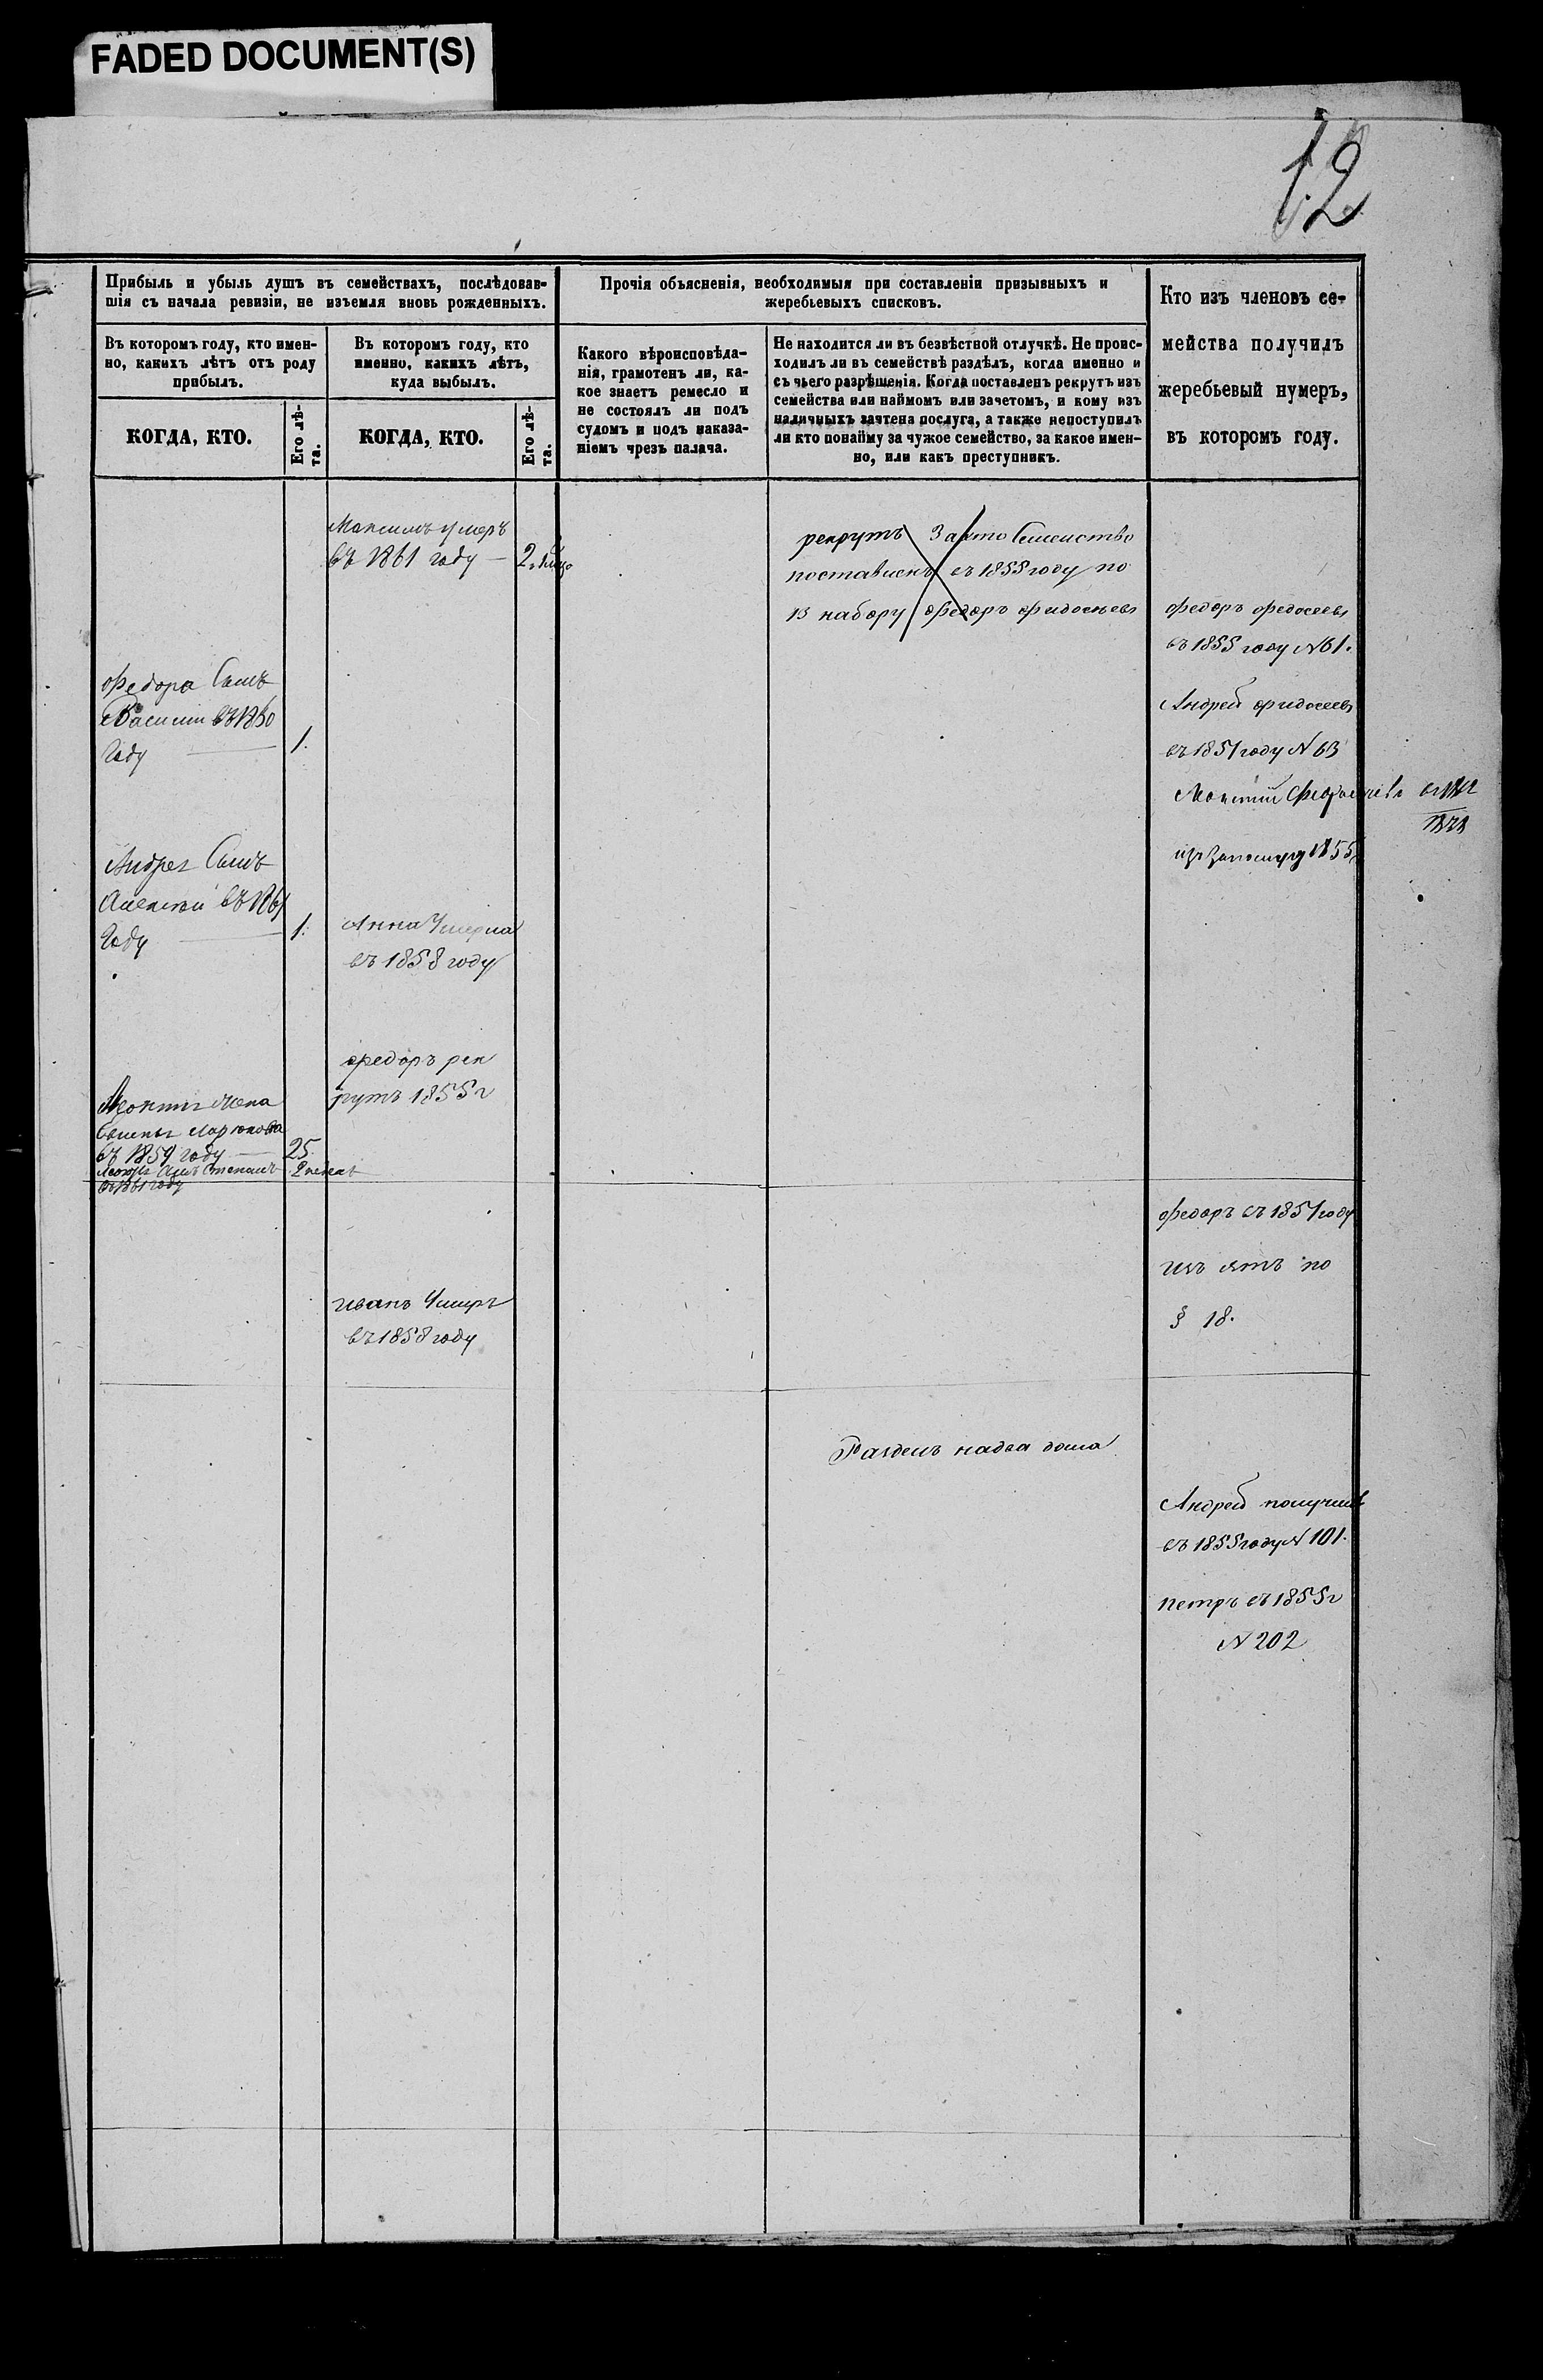 FADED DOCUMENT(S)
12
Прибыль и убыль душъ въ семействахъ, послѣдовав-
шія съ начала ревизіи, не изъемля вновь рожденныхъ.
Въ которомъ году, кто имен-
но, какихъ лѣтъ отъ роду
прибылъ.
Въ которомъ году, кто
именно, какихъ лѣтъ,
куда выбылъ.
КОГДА, КТО.
Его лѣ-
та.
КОГДА, КТО.
Его лѣ-
та.
Прочія объясненія, необходимыя при составленіи призывныхъ и
жеребьевыхъ списковъ.
Какого вѣроисповѣда-
нія, грамотенъ ли, ка-
кое знаетъ ремесло и
не состоялъ ли подъ
судомъ и подъ наказа-
ніемъ чрезъ палача.
Не находится ли въ безвѣстной отлучкѣ. Не проис-
ходилъ ли въ семействѣ раздѣлъ, когда именно и
съ чьего разрѣшенія. Когда поставленъ рекрутъ изъ
семейства или наймомъ или зачетомъ, и кому изъ
наличныхъ зачтена послуга, а также непоступилъ
ли кто понайму за чужое семейство, за какое имен-
но, или какъ преступникъ.
Кто изъ членовъ се-
мейства получилъ
жеребьевый нумеръ,
въ которомъ году.
Максимъ умеръ
въ 1861 году — 2
рекрутъ За это Семейство
поставленъ въ 1855 году по
13 набору федоръ фидосѣевъ
федоръ федосеевъ
въ 1855 году № 61.
федора Сынъ
Василий въ 1860
году — 1.
Андрей фидосеевъ
въ 1851 году № 63
1855
Андрея Сынъ
Алексѣй въ 1861
году — 1.
Анна Умерла
въ 1858 году
федоръ рек
рутъ 1855 г
жена
въ 1859 году — 25
Сынъ Степанъ 2 недель
въ 1861 году
федоръ въ 1851 году
изъ ятъ по
§ 18.
иванъ Умеръ
въ 1858 году
Разделъ надва дома
Андрей получилъ
въ 1855 году № 101.
петръ въ 1855 г
№ 202